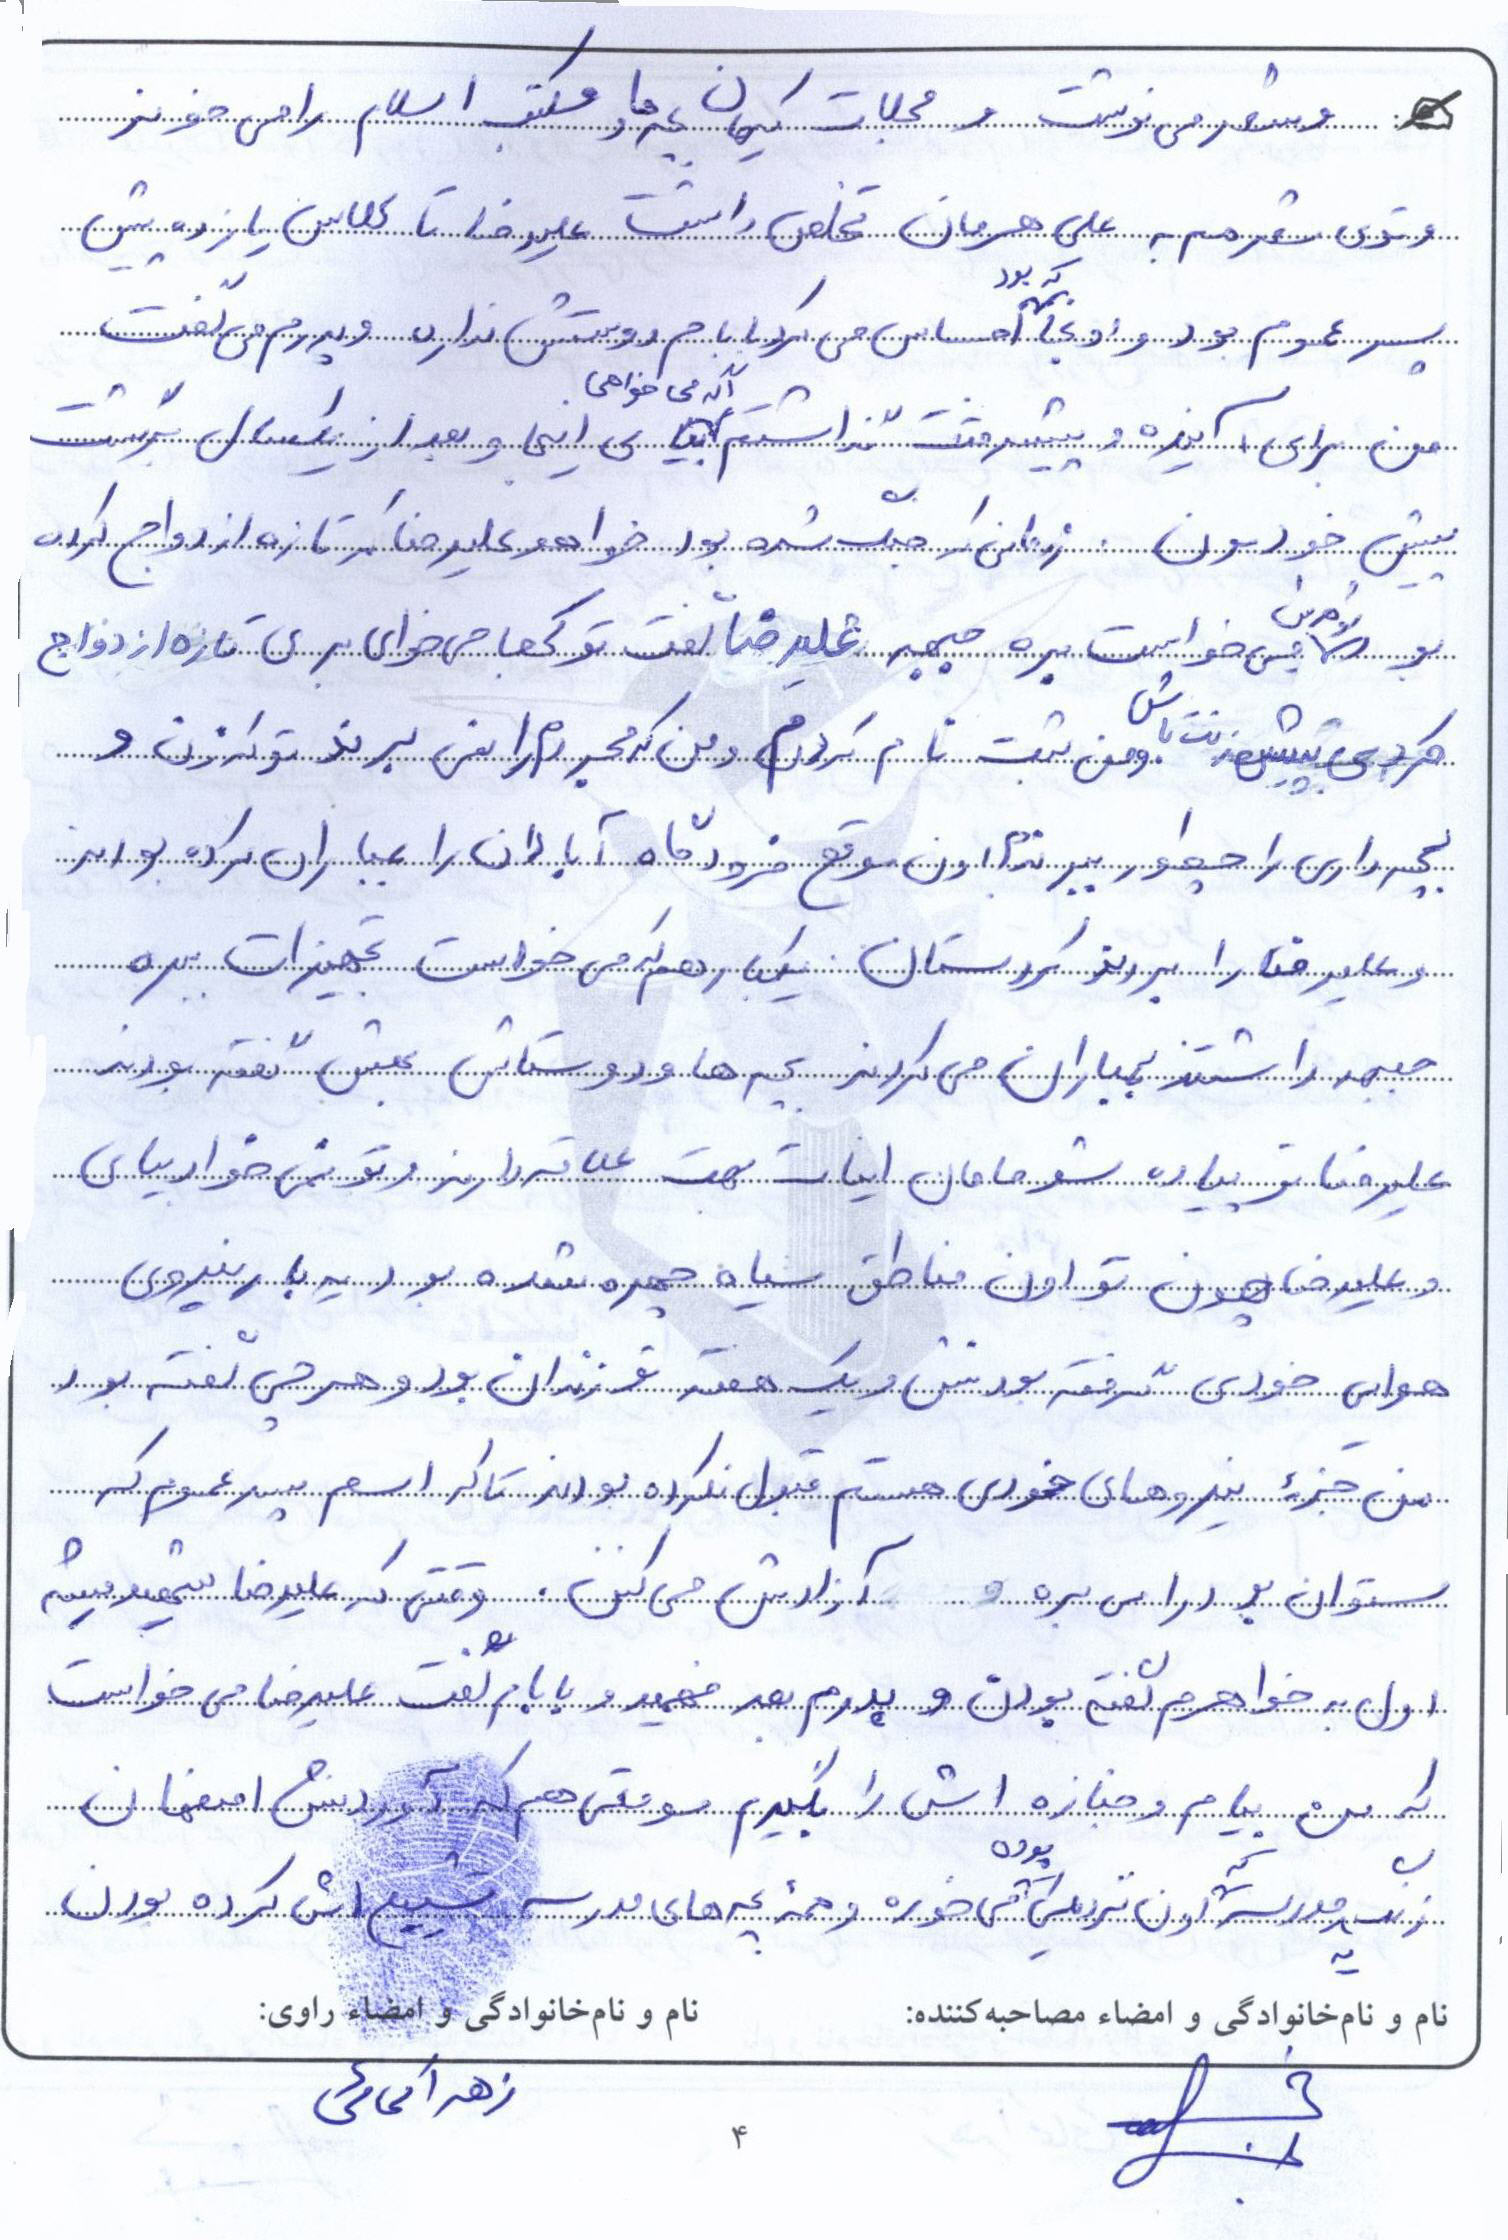 و شعر می نوشت و مجلات کیهان بچه ها و مکتب اسلام را می خوند
و توی شعرهم به علی هرمان تخلص داشت علیرضا تا کلاس یازده پیش
پسر عموم بود و اونجا که بود احساس می کرد بابام دوستش نداره و پدرم می گفت
من برای آینده و پیشرفت گذاشتم اگه می خواهی بیای اینجا و بعد از یکسال برگشت
پیش خودمون . زمانی که جنگ شده بود خواهر علیرضا که تازه ازدواج کرده
بود می خواست بره جبهه علیرضا گفت تو کجا می خوای بری تازه ازدواج
کردی پیش زنت باش ومن ثبت نام کردم ومن که مجردم را نمی برند تو که زن و
بچه داری را چطور ببرند اون موقع فرودگاه آبادان را بمباران کرده بودند
و علیرضا را بردند کردستان یکبار هم که می خواست تجهیزات ببره
جبهه داشتند بمباران می کردند بچه ها و دوستاش بهش گفته بودند
علیرضا تو پیاده شو مامان اینات بهت علاقه دارند و تو نمی خواد بیای
و علیرضا چون تو اون مناطق سیاه چهره شده بود یه بار نیروی
هوای خودی گرفته بودنش و یک هفته تو زندان بود و هر چی گفته بود
من جزء نیروهای خودی هستم قبول نکرده بودند تا که اسم پسر عموم که
ستوان بود را می بره و آزادش می کنن . وقتی که علیرضا شهید میشه
اول به خواهرم گفته بودن و پدرم بعد فهمید و بابام گفت علیرضا می خواست
که من بیام و جنازه اش را بگیرم موقعی هم که آوردنش اصفهان
زنگ مدرسه که اون نزدیکی بوده می خوره و همه بچه های مدرسه تشییع اش کرده بودن
نام و نام‌خانوادگی و امضاء مصاحبه‌کننده: نام و نام‌خانوادگی و امضاء راوی:
۴